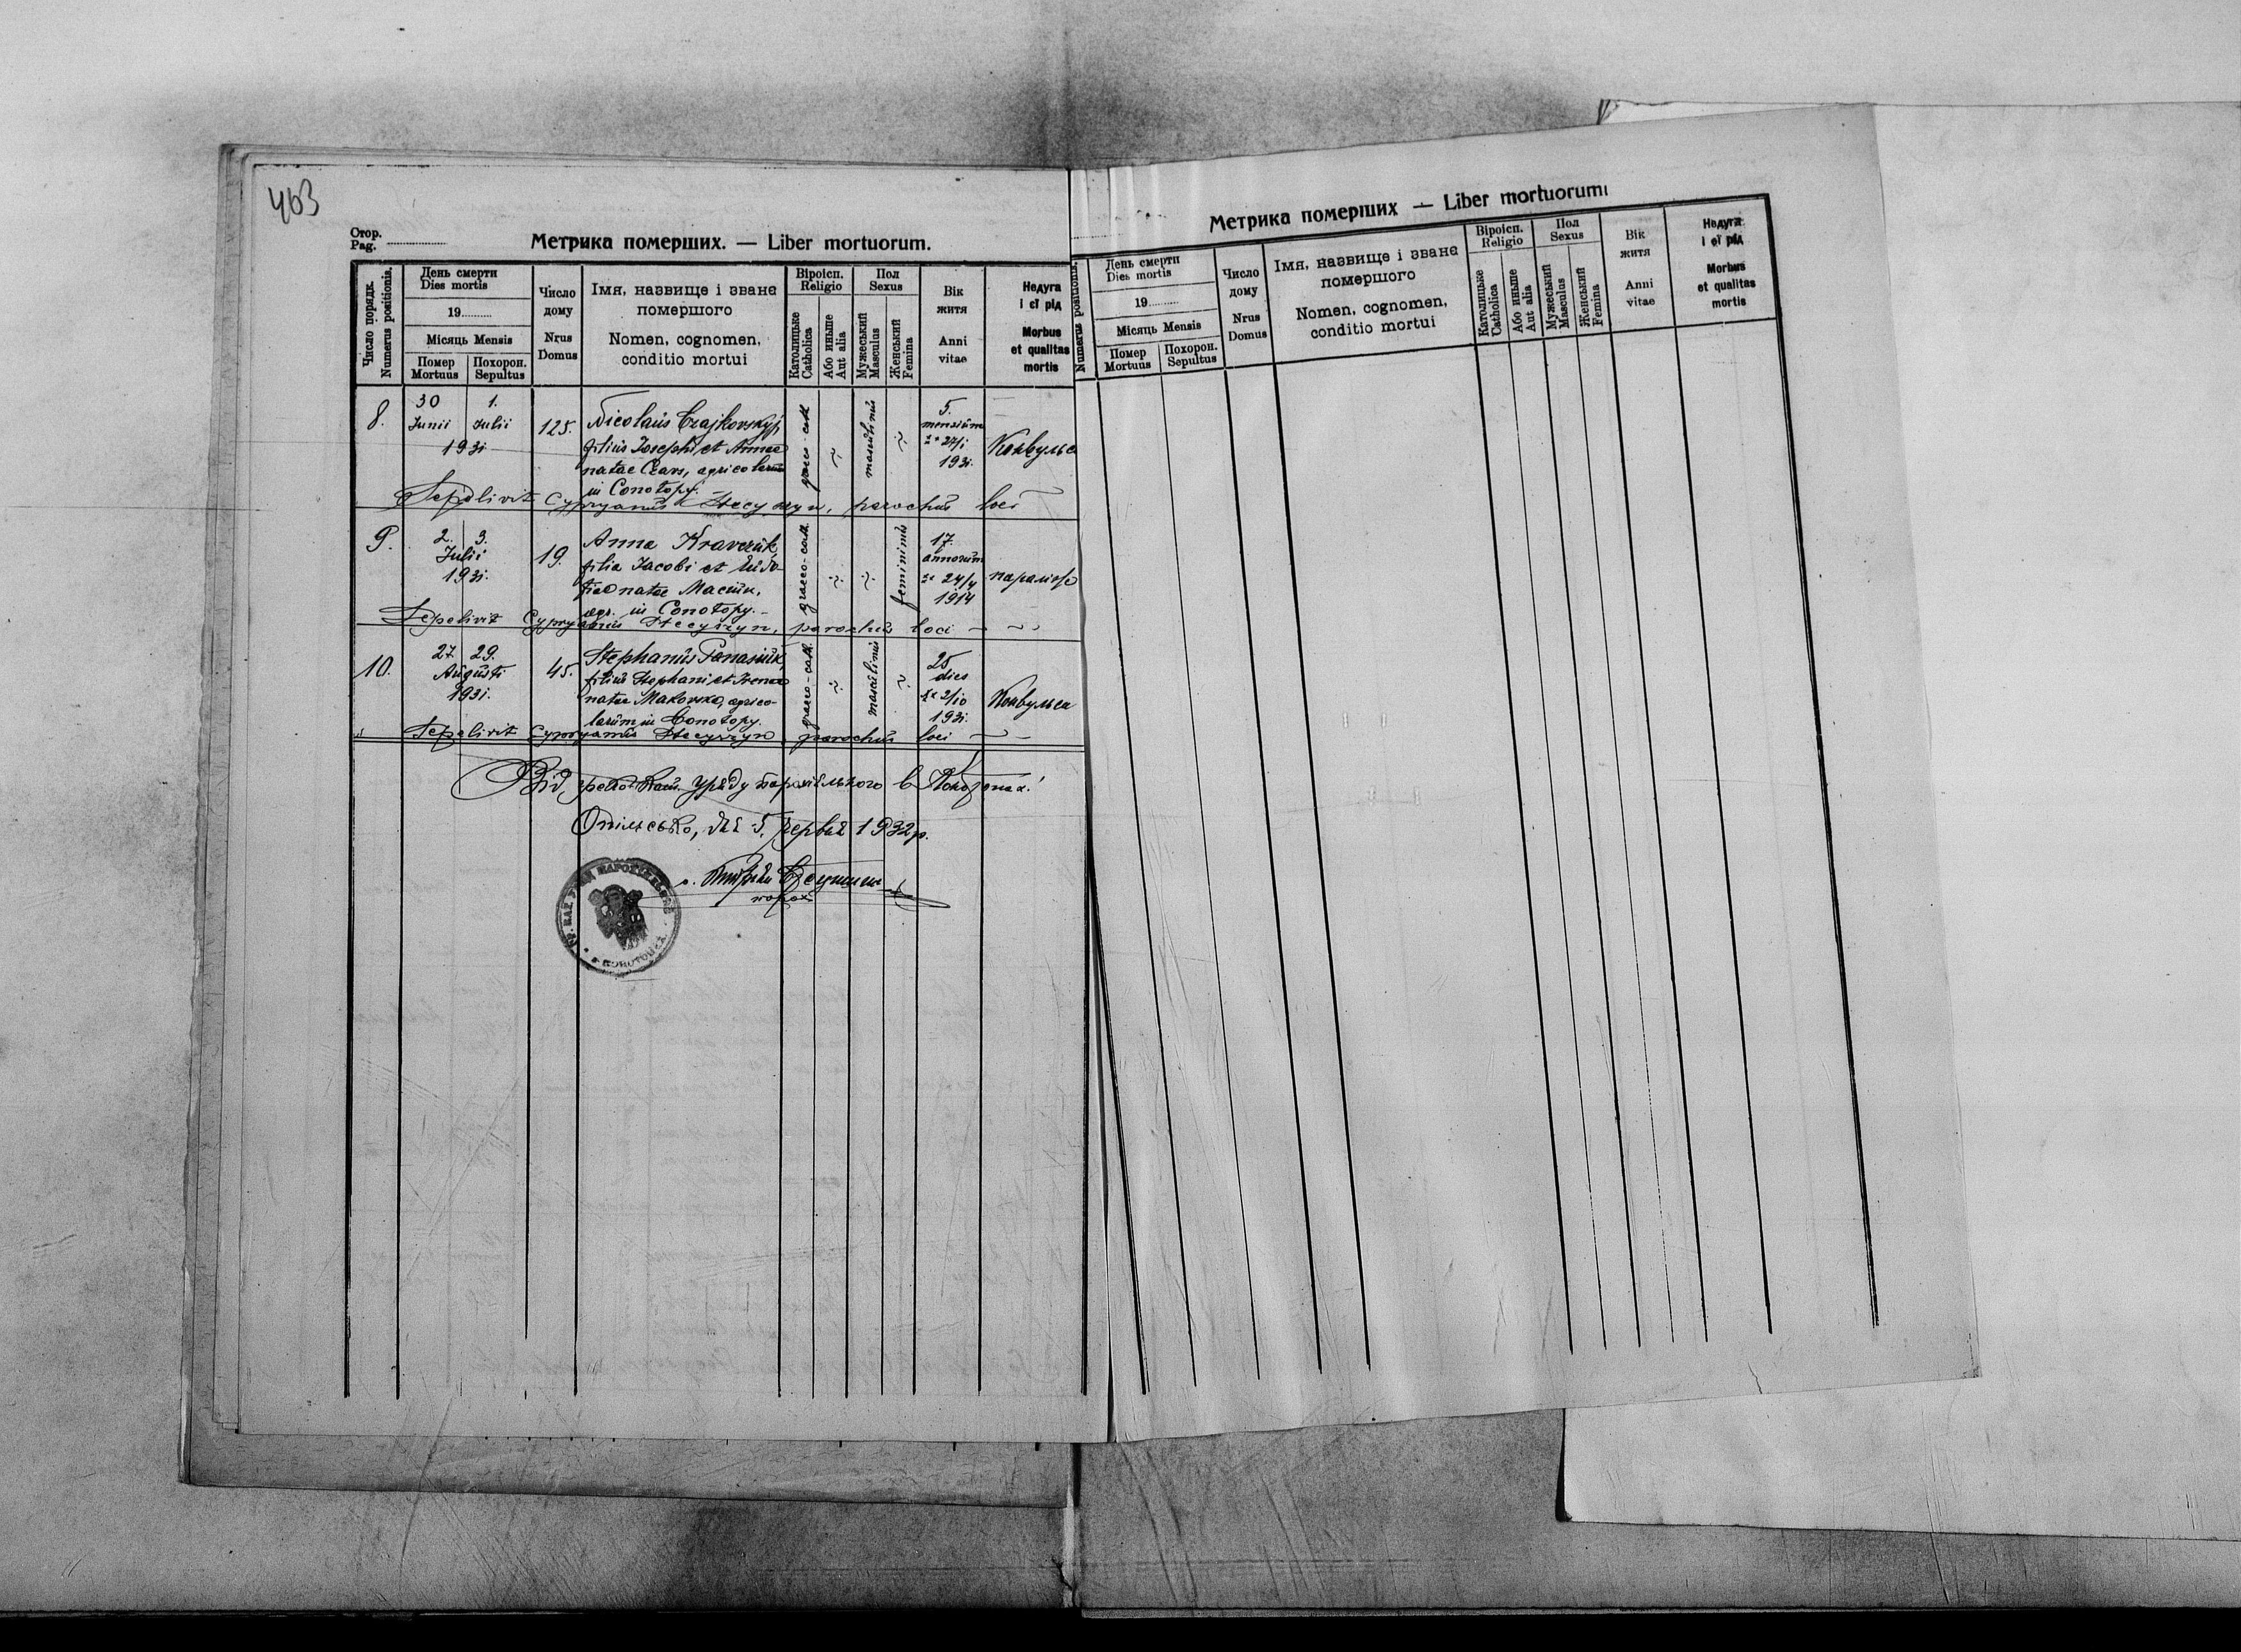 463
Стор.
Pag.
Метрика померших. — Liber mortuorum.
Число порядк.
Numerus positionis.
День смерти
Dies mortis
19
Місяць Mensis
Помер
Mortuus
Похорон.
Sepultus
Число
дому
Nrus
Domus
Імя, назвище і званє
помершого
Nomen, cognomen,
conditio mortui
Віроісп.
Religio
Католицьке
Catholica
Або иньше
Aut alia
Пол
Sexus
Мужеський
Masculus
Женський
Femina
Вік
житя
Anni
vitae
Недуга
і єї рід
Morbus
et qualitas
mortis
8.
30
Junii
1.
Julii
1931
125.
Nicolaus Czajkovskyj
filius Josephi et Annae
natae
in Conotopy.
graeco-cath.
masculinus
5.
mensium
27/I
1931.
Sepelivit Cypryanus Stecyszyn, parochus loci
9.
2. 3.
Julii
1931.
19.
Anna Kravczuk,
filia Jacobi et
natae
agr. in Conotopy.
graeco-cath.
femininus
17.
annorum
24/4
1914
Sepelivit Cypryanus Stecyszyn, parochus loci
10.
27. 29.
Augusti
1931.
45.
Stephanus Panasiuk,
filius Stephani et Irenae
natae Makovska, agrico-
larum in Conotopy.
graeco-cath.
masculinus
25
dies
1931.
Sepelivit Cypryanus Stecyszyn parochus loci
Від греко кат. уряду парохіяльного в Конотопах.
1932р.
парох
Метрика померших — Liber mortuorum
Numerus positionis.
День смерти
Dies mortis
19
Місяць Mensis
Помер
Mortuus
Похорон.
Sepultus
Число
дому
Nrus
Domus
Імя, назвище і званє
помершого
Nomen, cognomen,
conditio mortui
Віроісп.
Religio
Католицьке
Catholica
Або иньше
Aut alia
Пол
Sexus
Мужеський
Masculus
Женський
Femina
Вік
житя
Anni
vitae
Недуга
і єї рід
Morbus
et qualitas
mortis